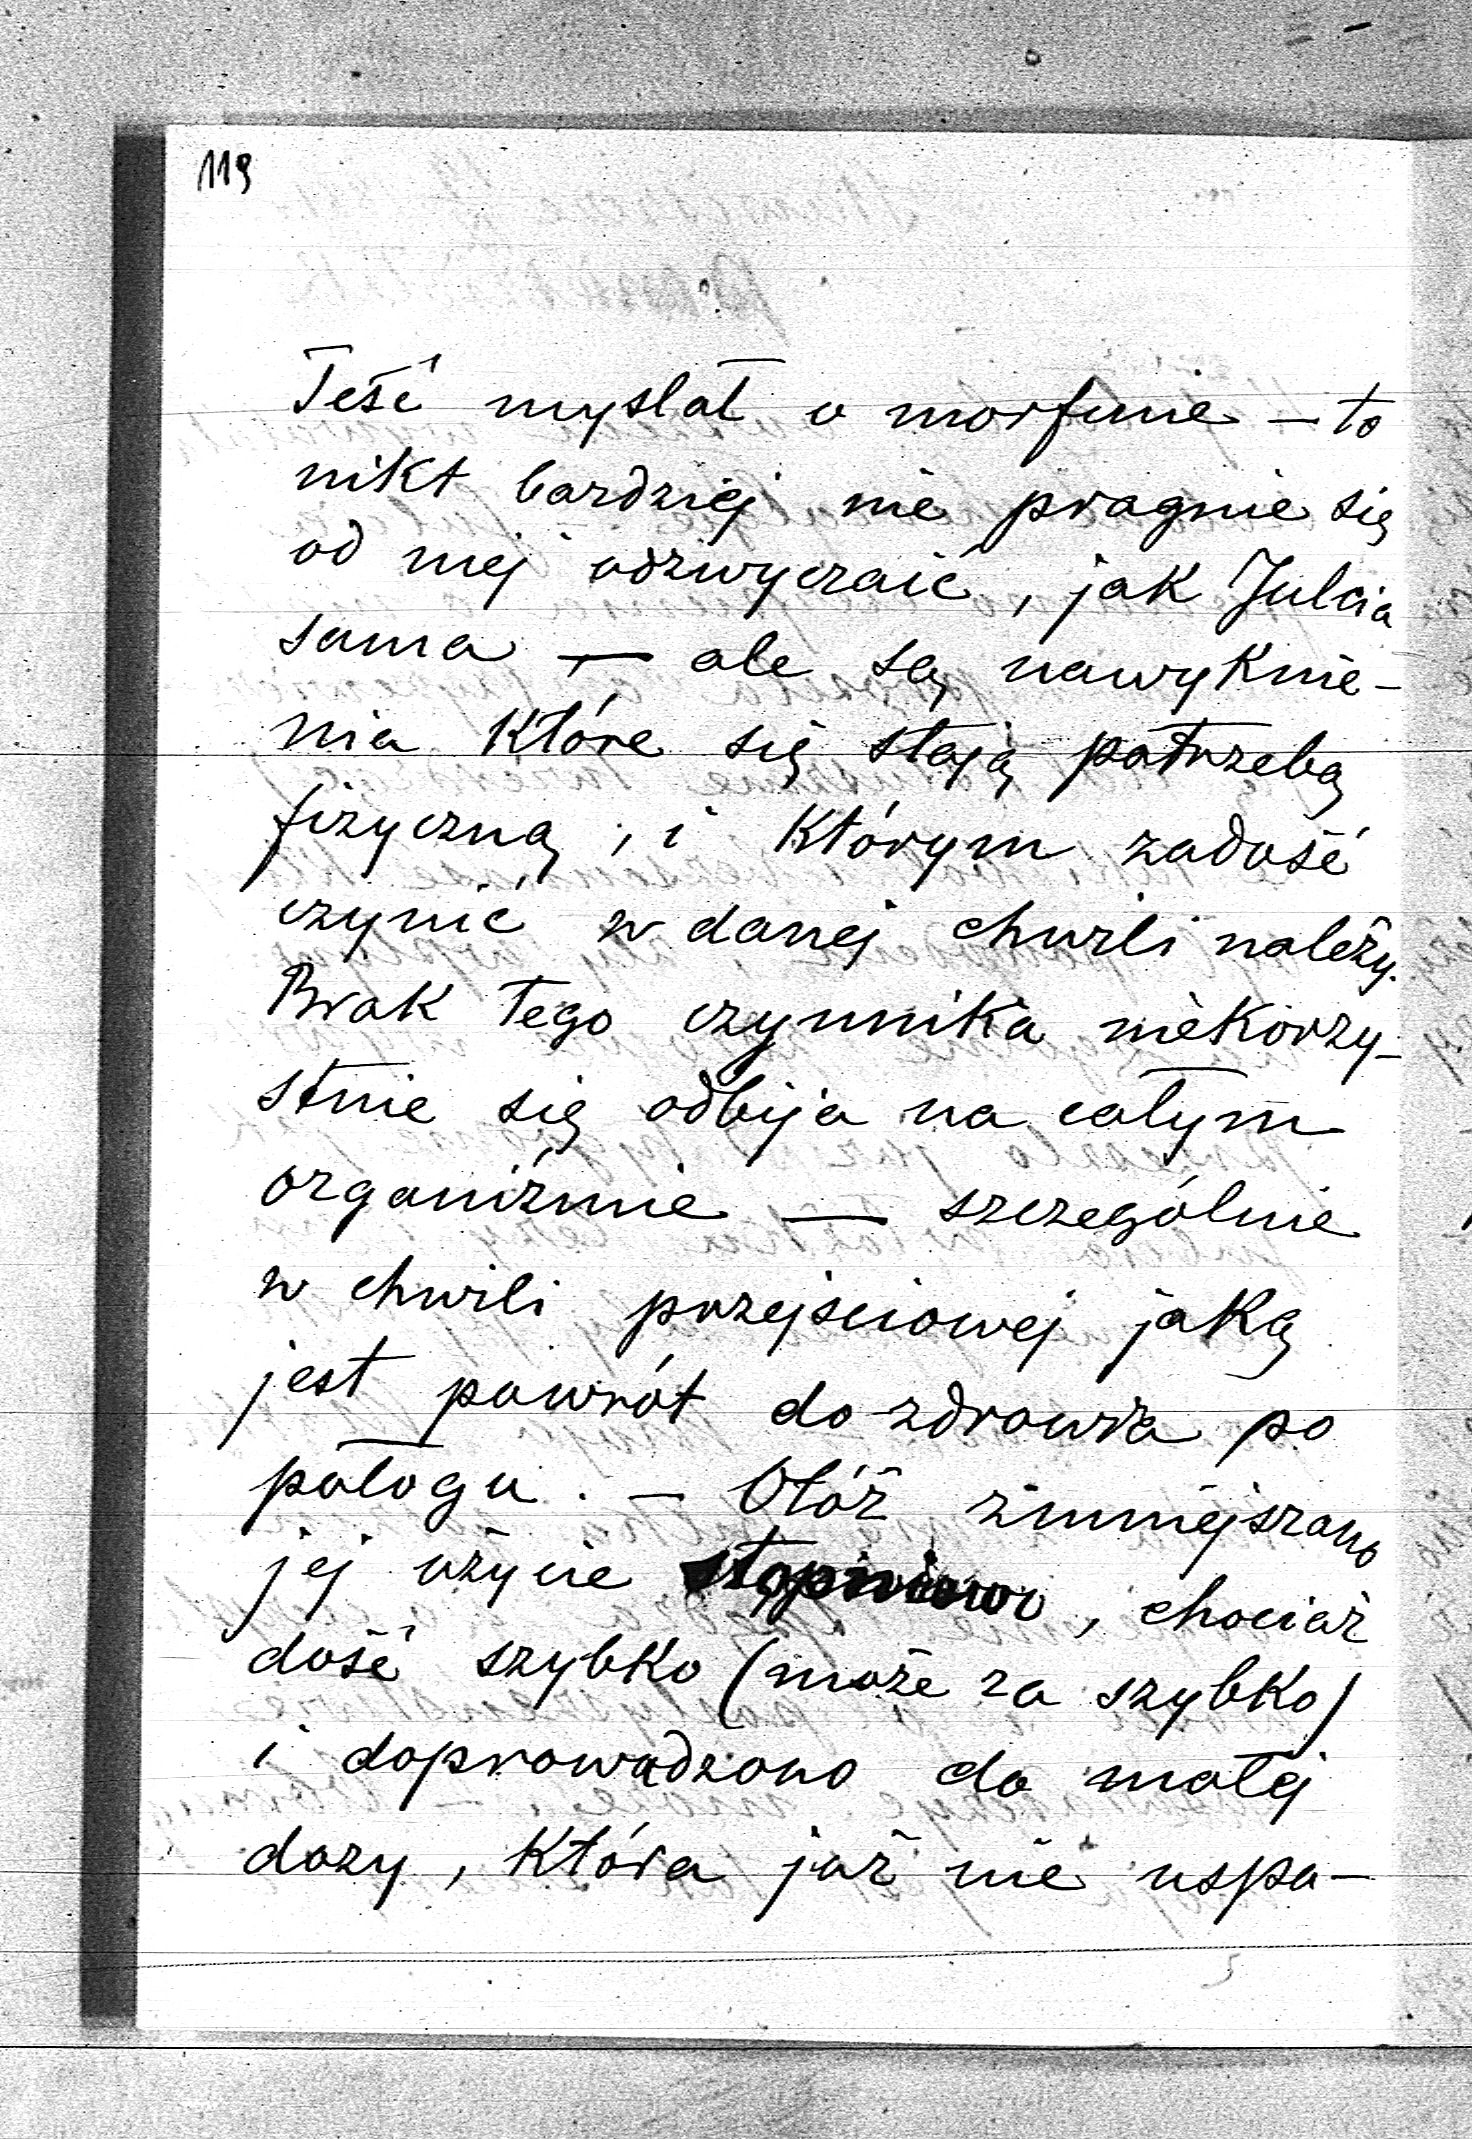 119
Teść myslał o morfinie – to
nikt bardziej nie pragnie się
od niej odzwyczaić, jak Julcia
sama — ale są nawyknie-
nia które się stają potrzebą
fizyczną, i którym zadość
czynić w danej chwili należy.
Brak tego czynnika niekorzy-
stnie się odbija na całym
organiźmie — szczególnie
w chwili przejsciowej jaką
jest powrót do zdrowia po
połogu. – Otóż zmniejszano
jej użycie stopniowo, chociaż
dość szybko (może za szybko)
i doprowadzono do małej
dozy, która już nie uspa-